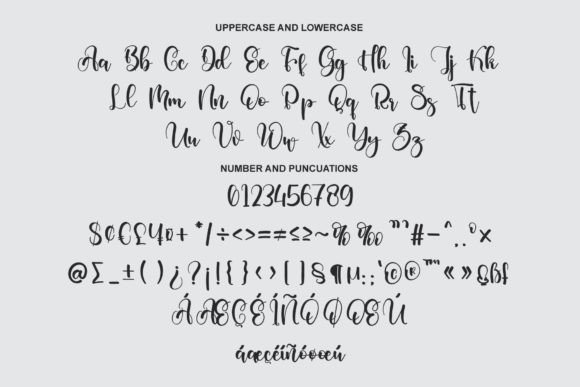 UPPERCASE AND LOWERCASE
Aa Bb Cc Dd Ee Ff Gg Hh Ii Jj Kk
Ll Mm Nn Oo Pp Qq Rr Ss Tt
Uu Vv Ww Xx Yy Zz
NUMBER AND PUNCUATIONS
0123456789
$¢€£¥¤+*/÷<>=≠≤≥~%‰"'#-^..°×
@Σ_±()¿?¡!{}‹›[]§¶µ:;'©®™«»
ÁÆÇÉÍÑÓØŒÚ
áæçéíñóøœú